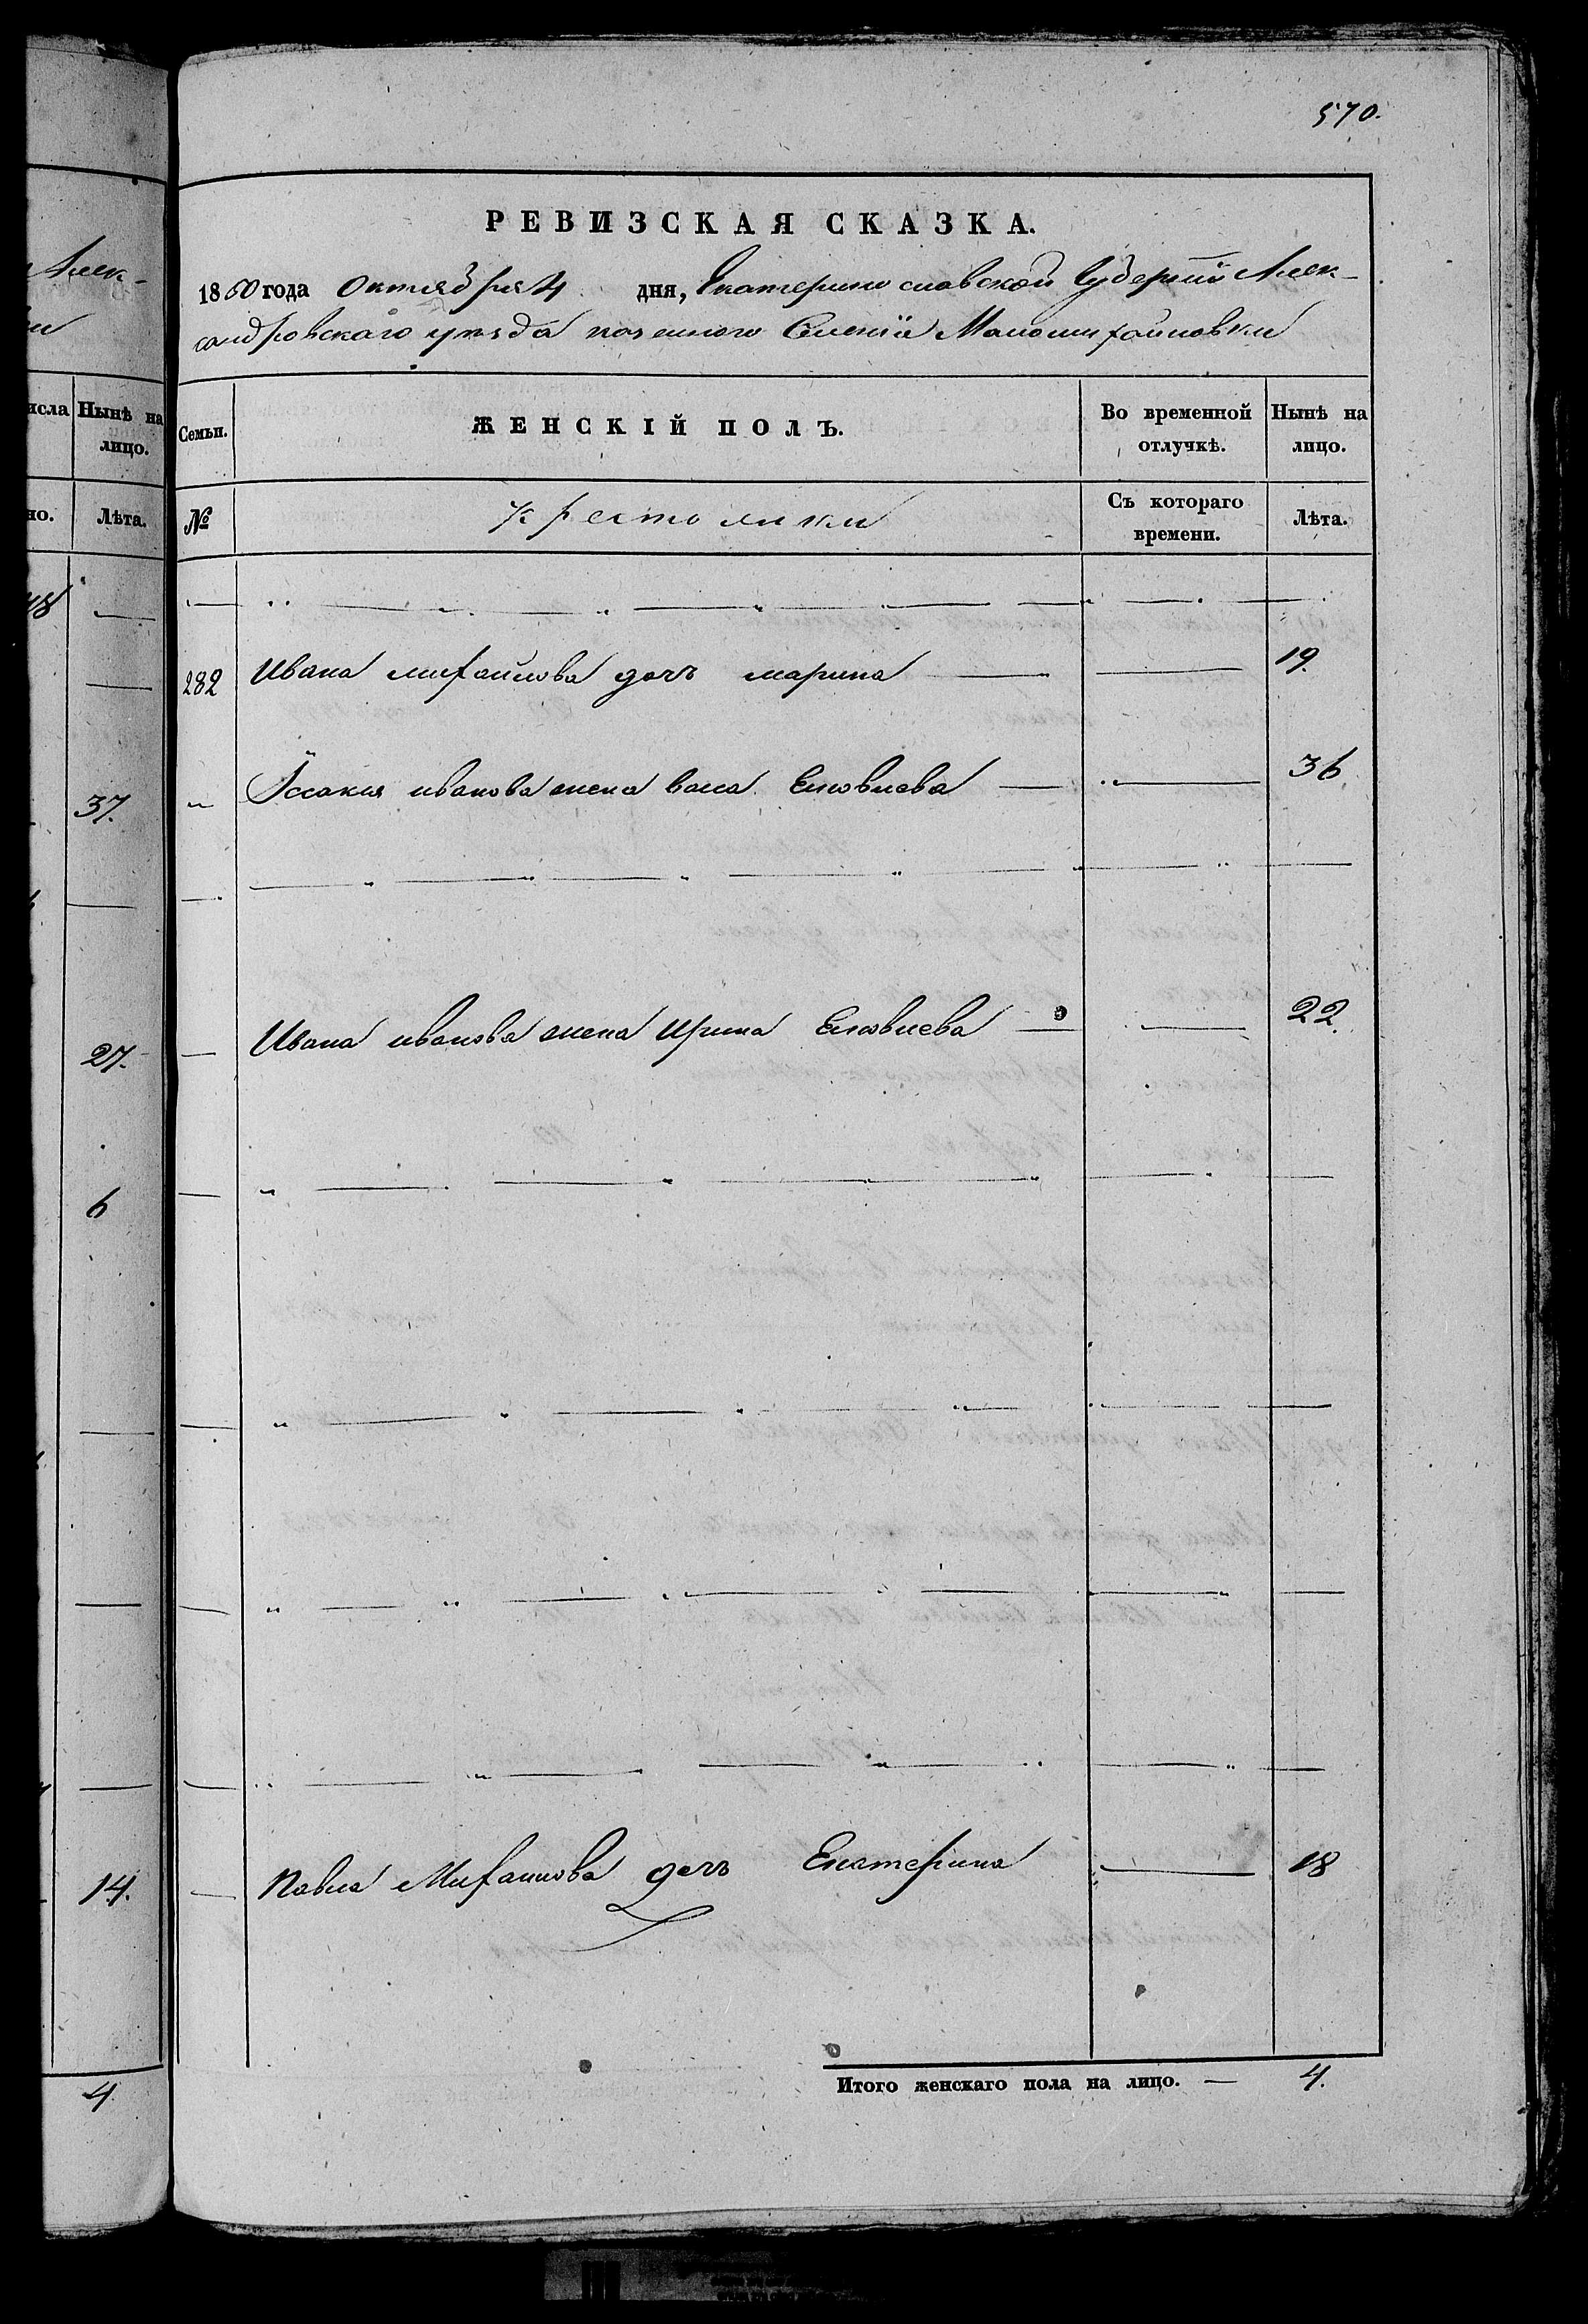 570.
РЕВИЗСКАЯ СКАЗКА.
1860 года Октября 4 дня, Екатеринославской Губерніи Алек-
сандровскаго уезда казенного Селенія Маломихайловки
Семьи. ЖЕНСКІЙ ПОЛЪ. Во временной отлучкѣ. Нынѣ на лицо.
№ Крестьянки Съ котораго времени. Лѣта.
282 Ивана михайлова дочь марина 19.
" Ісаакія иванова жена Еиовлева 36
Ивана иванова жена Ирина 22.
Павла Михайлова дочь Екатерина 18
Итого женскаго пола на лицо. — 4.
Алек-
исла Нынѣ на лицо.
но. Лѣта.
48
37.
27.
6
14.
4.